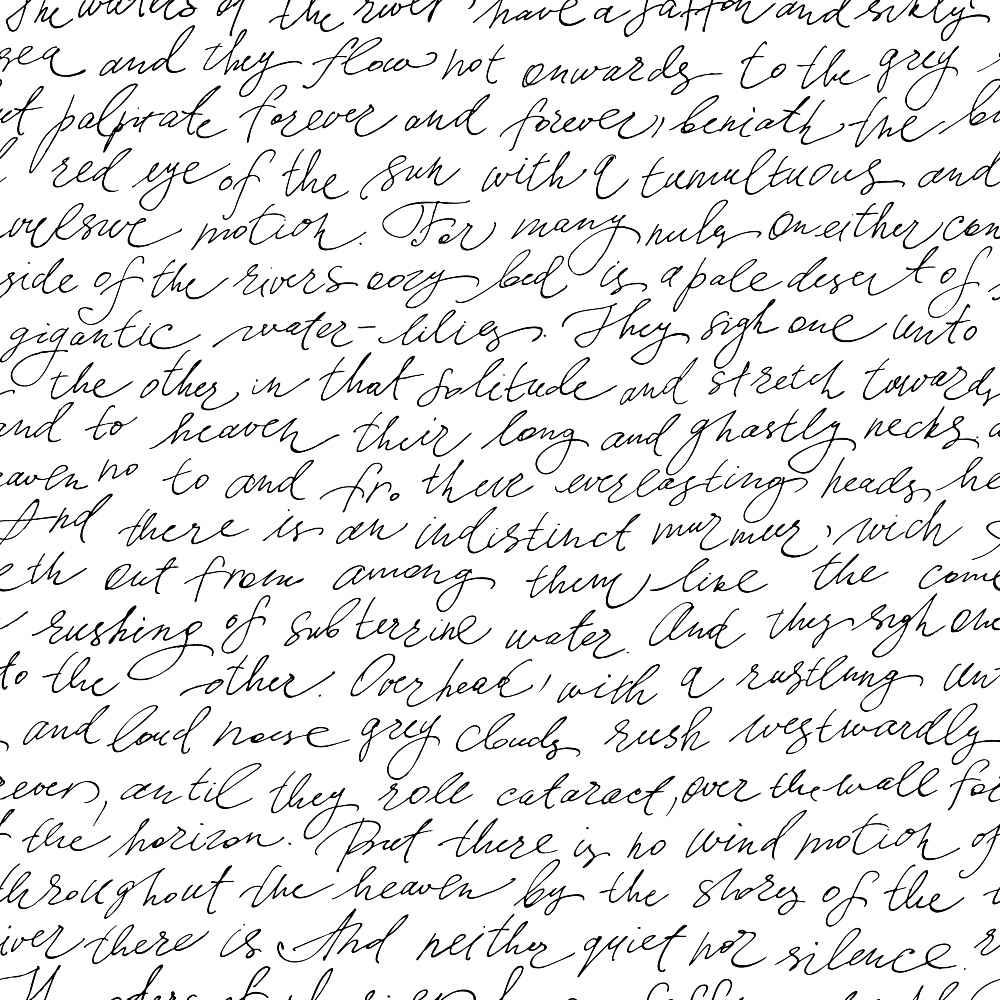 The waters of the river have a saffron and sikly
sea and they flow not onwards to the grey
ut palpitate forever and forever, beniath the
red eye of the sun with a tumultuous and
vulsive motion. For many miles on either con
side of the rivers oozy bed is a pale desert of
gigantic water-lilies. They sigh one unto
the other in that solitude and stretch towards
and to heaven their long and ghastly necks a
eaven no to and fro there everlasting heads he
And there is an indistinct murmur, wich
eth out from among them like the come
rushing of subterrine water. And they sigh one
to the other. Overhead, with a rustlung un
and loud noise grey clouds rush westwardly
rever, until they roll cataract, over the wall for
the horizon. But there is no wind motion of
throughout the heaven by the shores of the
iver there is And neither quiet nor silence. r